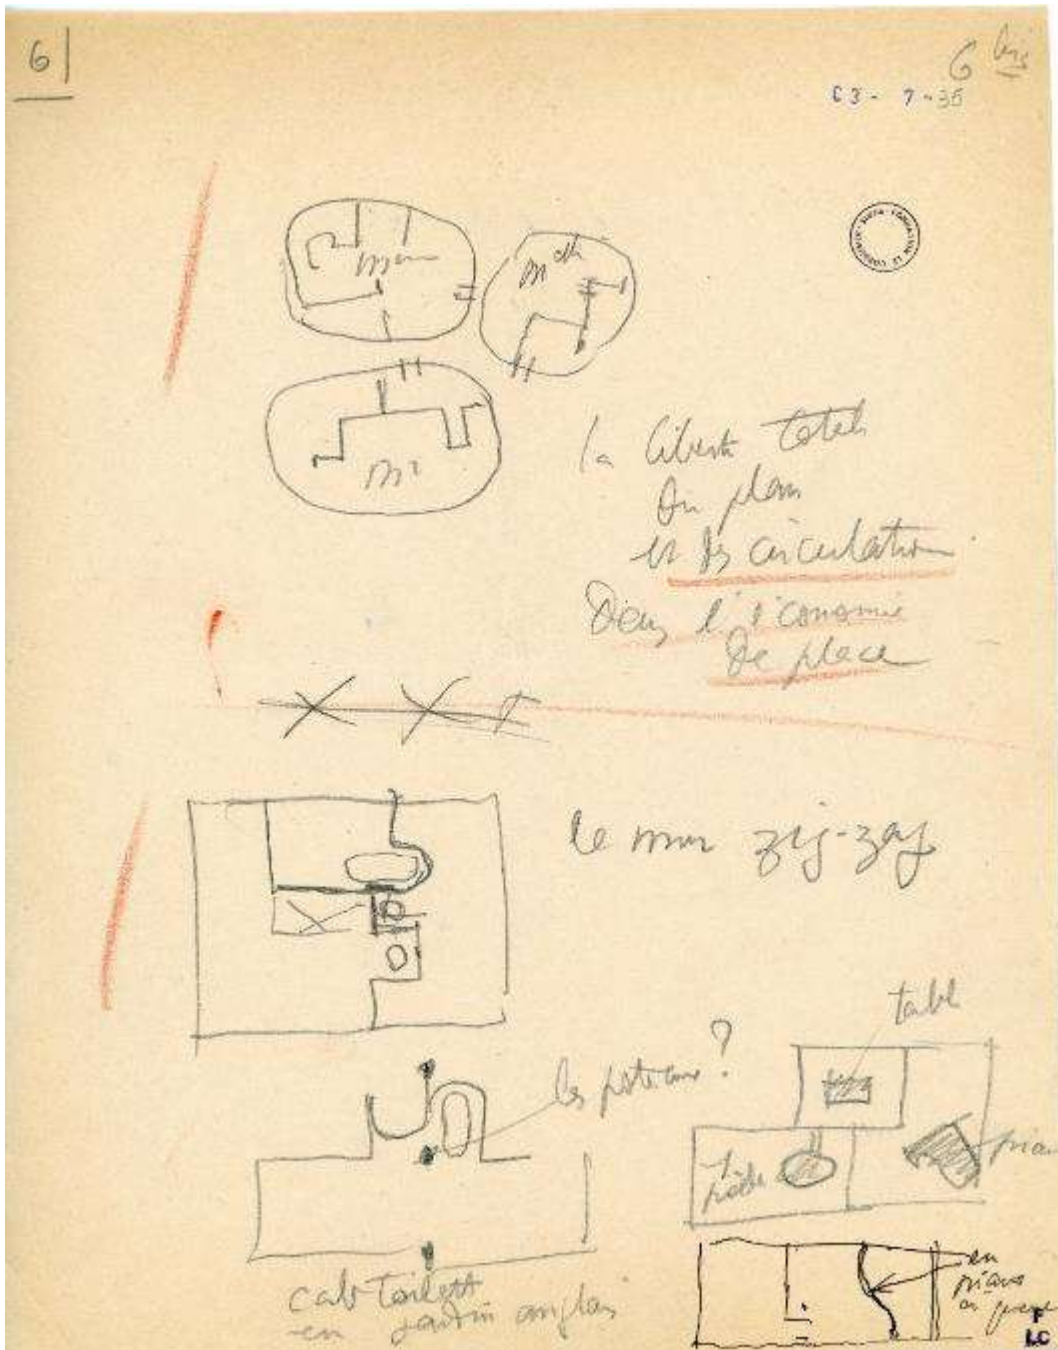 6
6 bis
C3-7-35
FONDATION LE CORBUSIER
la liberté totale
du plan
et des circulation
dans l'économie
de place
le mur zig-zag
table
les poteaux ?
poêle
pian
cab toilett
en jardin anglais
en
piano
F
LC